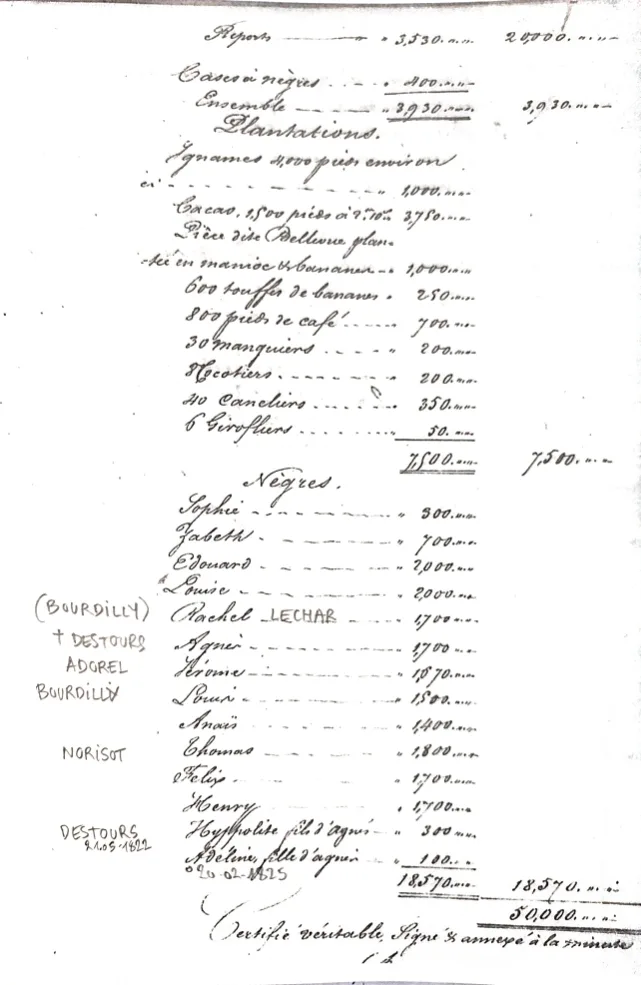 Reports " 3,530. " " 20,000. " "
Cases à nègres " 400. " "
Ensemble " 3,930. " " 3,930. " "
Plantations.
Ignames 4,000 pieds environ
ci " 1,000. " "
Cacao, 1,500 pieds à 3,750. " "
Pièce dite Bellevue plan-
tée en manioc & bananes " 1,000. " "
600 touffes de bananes " 250. " "
800 pieds de café " 700. " "
30 manguiers " 200. " "
8 Cocotiers " 200. " "
40 Caneliers " 350. " "
6 Girofliers " 50. " "
7,500. " " 7,500. " "
Nègres.
Sophie " 300. " "
Zabeth " 700. " "
Edouard " 2,000. " "
Louise " 2,000. " "
(BOURDILLY) Rachel LECHAR " 1,700. " "
+ DESTOURS Agnès " 1,700. " "
ADOREL Jérome " 1,670. " "
BOURDILLY Louis " 1,500. " "
Anaïs " 1,400. " "
NORISOT Thomas " 1,800. " "
Felix " 1,700. " "
Henry " 1,700. " "
DESTOURS Hyppolite fils d'agnès " 300. " "
21.05.1822
Adéline, fille d'agnès " 100. " "
° 20-02-1825
18,570. " " 18,570. " "
50,000. " "
Certifié véritable, Signé & annexé à la minute